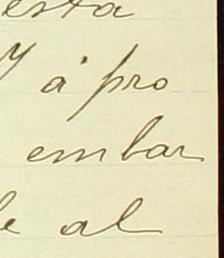 esta
y á pro
embar
le al